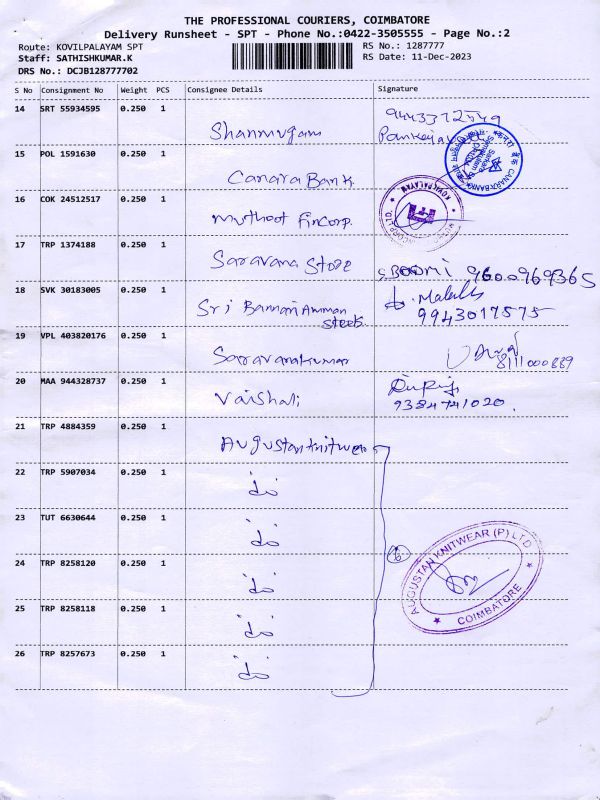 THE PROFESSIONAL COURIERS, COIMBATORE
Delivery Runsheet - SPT - Phone No.:0422-3505555 - Page No.:2
Route: KOVILPALAYAM SPT
RS No.: 1287777
Staff: SATHISHKUMAR.K
RS Date: 11-Dec-2023
DRS No.: DCJB128777702
S No Consignment No Weight PCS Consignee Details Signature
14 SRT 55934595 0.250 1 Shanmugam 9443372549
15 POL 1591630 0.250 1 Canara Bank
CANARA BANK
16 COK 24512517 0.250 1 Muthoot Fincorp
KOVILPALAYAM
17 TRP 1374188 0.250 1 Saravana Store S. BOOMI 9600969365
18 SVK 30183005 0.250 1 Sri Bannari Amman Steels
9943017575
19 VPL 403820176 0.250 1 Saravanakumar
8111000889
20 MAA 944328737 0.250 1 Vaishali
9384741020.
21 TRP 4884359 0.250 1 Augustan Knitwear
22 TRP 5907034 0.250 1 do
23 TUT 6630644 0.250 1 do
24 TRP 8258120 0.250 1 do 6
AUGUSTAN KNITWEAR (P) LTD
COIMBATORE
25 TRP 8258118 0.250 1 do
26 TRP 8257673 0.250 1 do